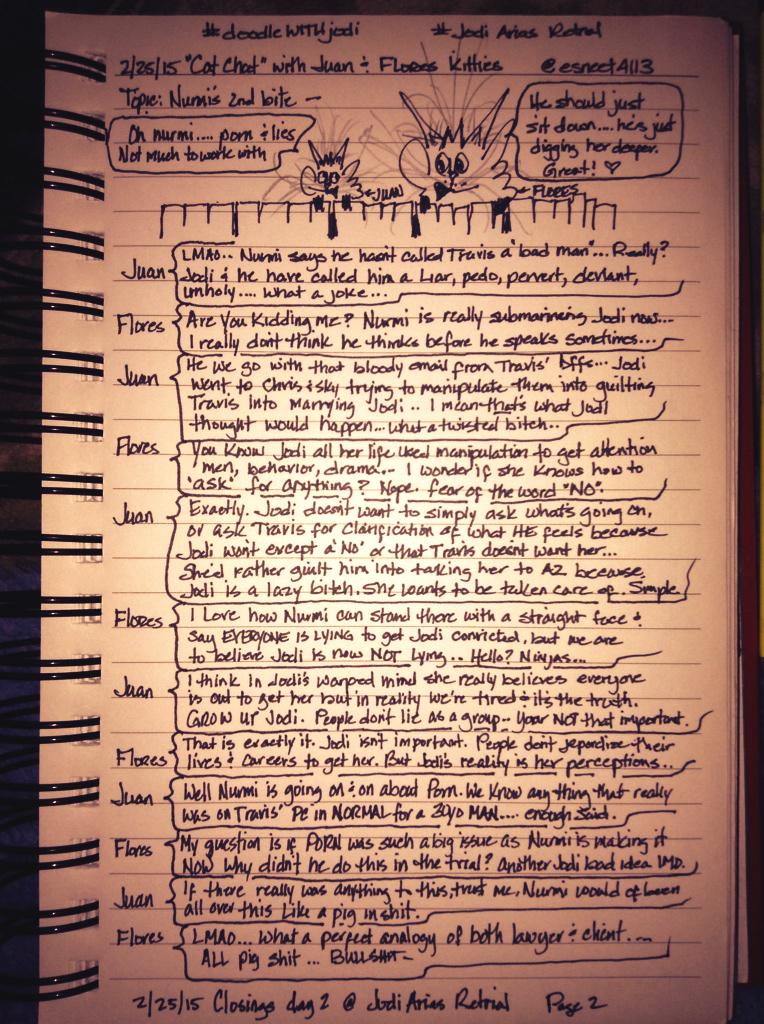 #doodleWITHjodi #Jodi Arias Retrial
2/25/15 "Cat Chat" with Juan & Flores Kitties @esneet4113
Topic: Nurmi's 2nd bite —
Oh nurmi.... porn & lies
Not much to work with
He should just
sit down.... he's just
digging her deeper.
Great! ♡
←JUAN
←FLORES
Juan
LMAO.. Nurmi says he hasn't called Travis a "bad man"... Really?
Jodi & he have called him a Liar, pedo, pervert, deviant,
unholy.... what a joke...
Flores
Are You Kidding Me? Nurmi is really submarining Jodi now...
I really don't think he thinks before he speaks sometimes...
Juan
He we go with that bloody email from Travis' bffs... Jodi
went to Chris & Sky trying to manipulate them into guilting
Travis into Marrying Jodi.. I mean that's what Jodi
thought would happen... what a twisted bitch..
Flores
You Know Jodi all her life used manipulation to get attention
men, behavior, drama... I wonder if she knows how to
"ask" for anything? Nope. fear of the word "NO".
Juan
Exactly. Jodi doesn't want to simply ask what's going on,
or ask Travis for Clarification of what HE feels because
Jodi won't except a 'No' or that Travis doesn't want her...
She'd rather guilt him into taking her to AZ because
Jodi is a lazy bitch. She wants to be taken care of. Simple
Flores
I Love how Nurmi can stand there with a straight face &
say EVERYONE is LYING to get Jodi convicted, but we are
to believe Jodi is now NOT Lying.. Hello? Ninjas...
Juan
I think in Jodi's warped mind she really believes everyone
is out to get her but in reality we're tired & its the truth.
GROW UP Jodi. People don't lie as a group.. Your NOT that important.
Flores
That is exactly it. Jodi isn't important. People don't jepordize their
lives & careers to get her. But Jodi's reality is her perceptions..
Juan
Well Nurmi is going on & on about Porn. We Know anything that really
was on Travis' PC in NORMAL for a 30y/o MAN.... enough Said.
Flores
My question is if PORN was such a big issue as Nurmi is making it
Now why didn't he do this in the trial? Another Jodi bad idea IMO.
Juan
If there really was anything to this, trust me, Nurmi would of been
all over this Like a pig in shit.
Flores
LMAO... What a perfect analogy of both lawyer & client....
ALL pig shit ... BULLSHIT—
2/25/15 Closings day 2 @ Jodi Arias Retrial Page 2